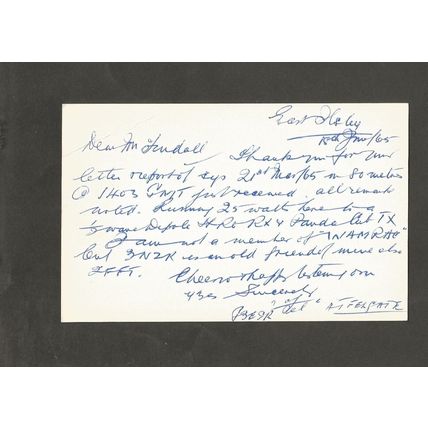 East Ilsley
Jun/65
Dear Mr Tindall
Thank you for your
letter & report of sigs 21st May/65 on 80 metres
@ 1403 GMT just received. all remarks
noted. Running 25 watts here to a
Dipole HRO RX & Panda Cub TX
I am not a member of "INAMRAC"
but 3NZK is an old friend of mine also
2FFT.
Cheerio & happy listening om
Yrs Sincerely